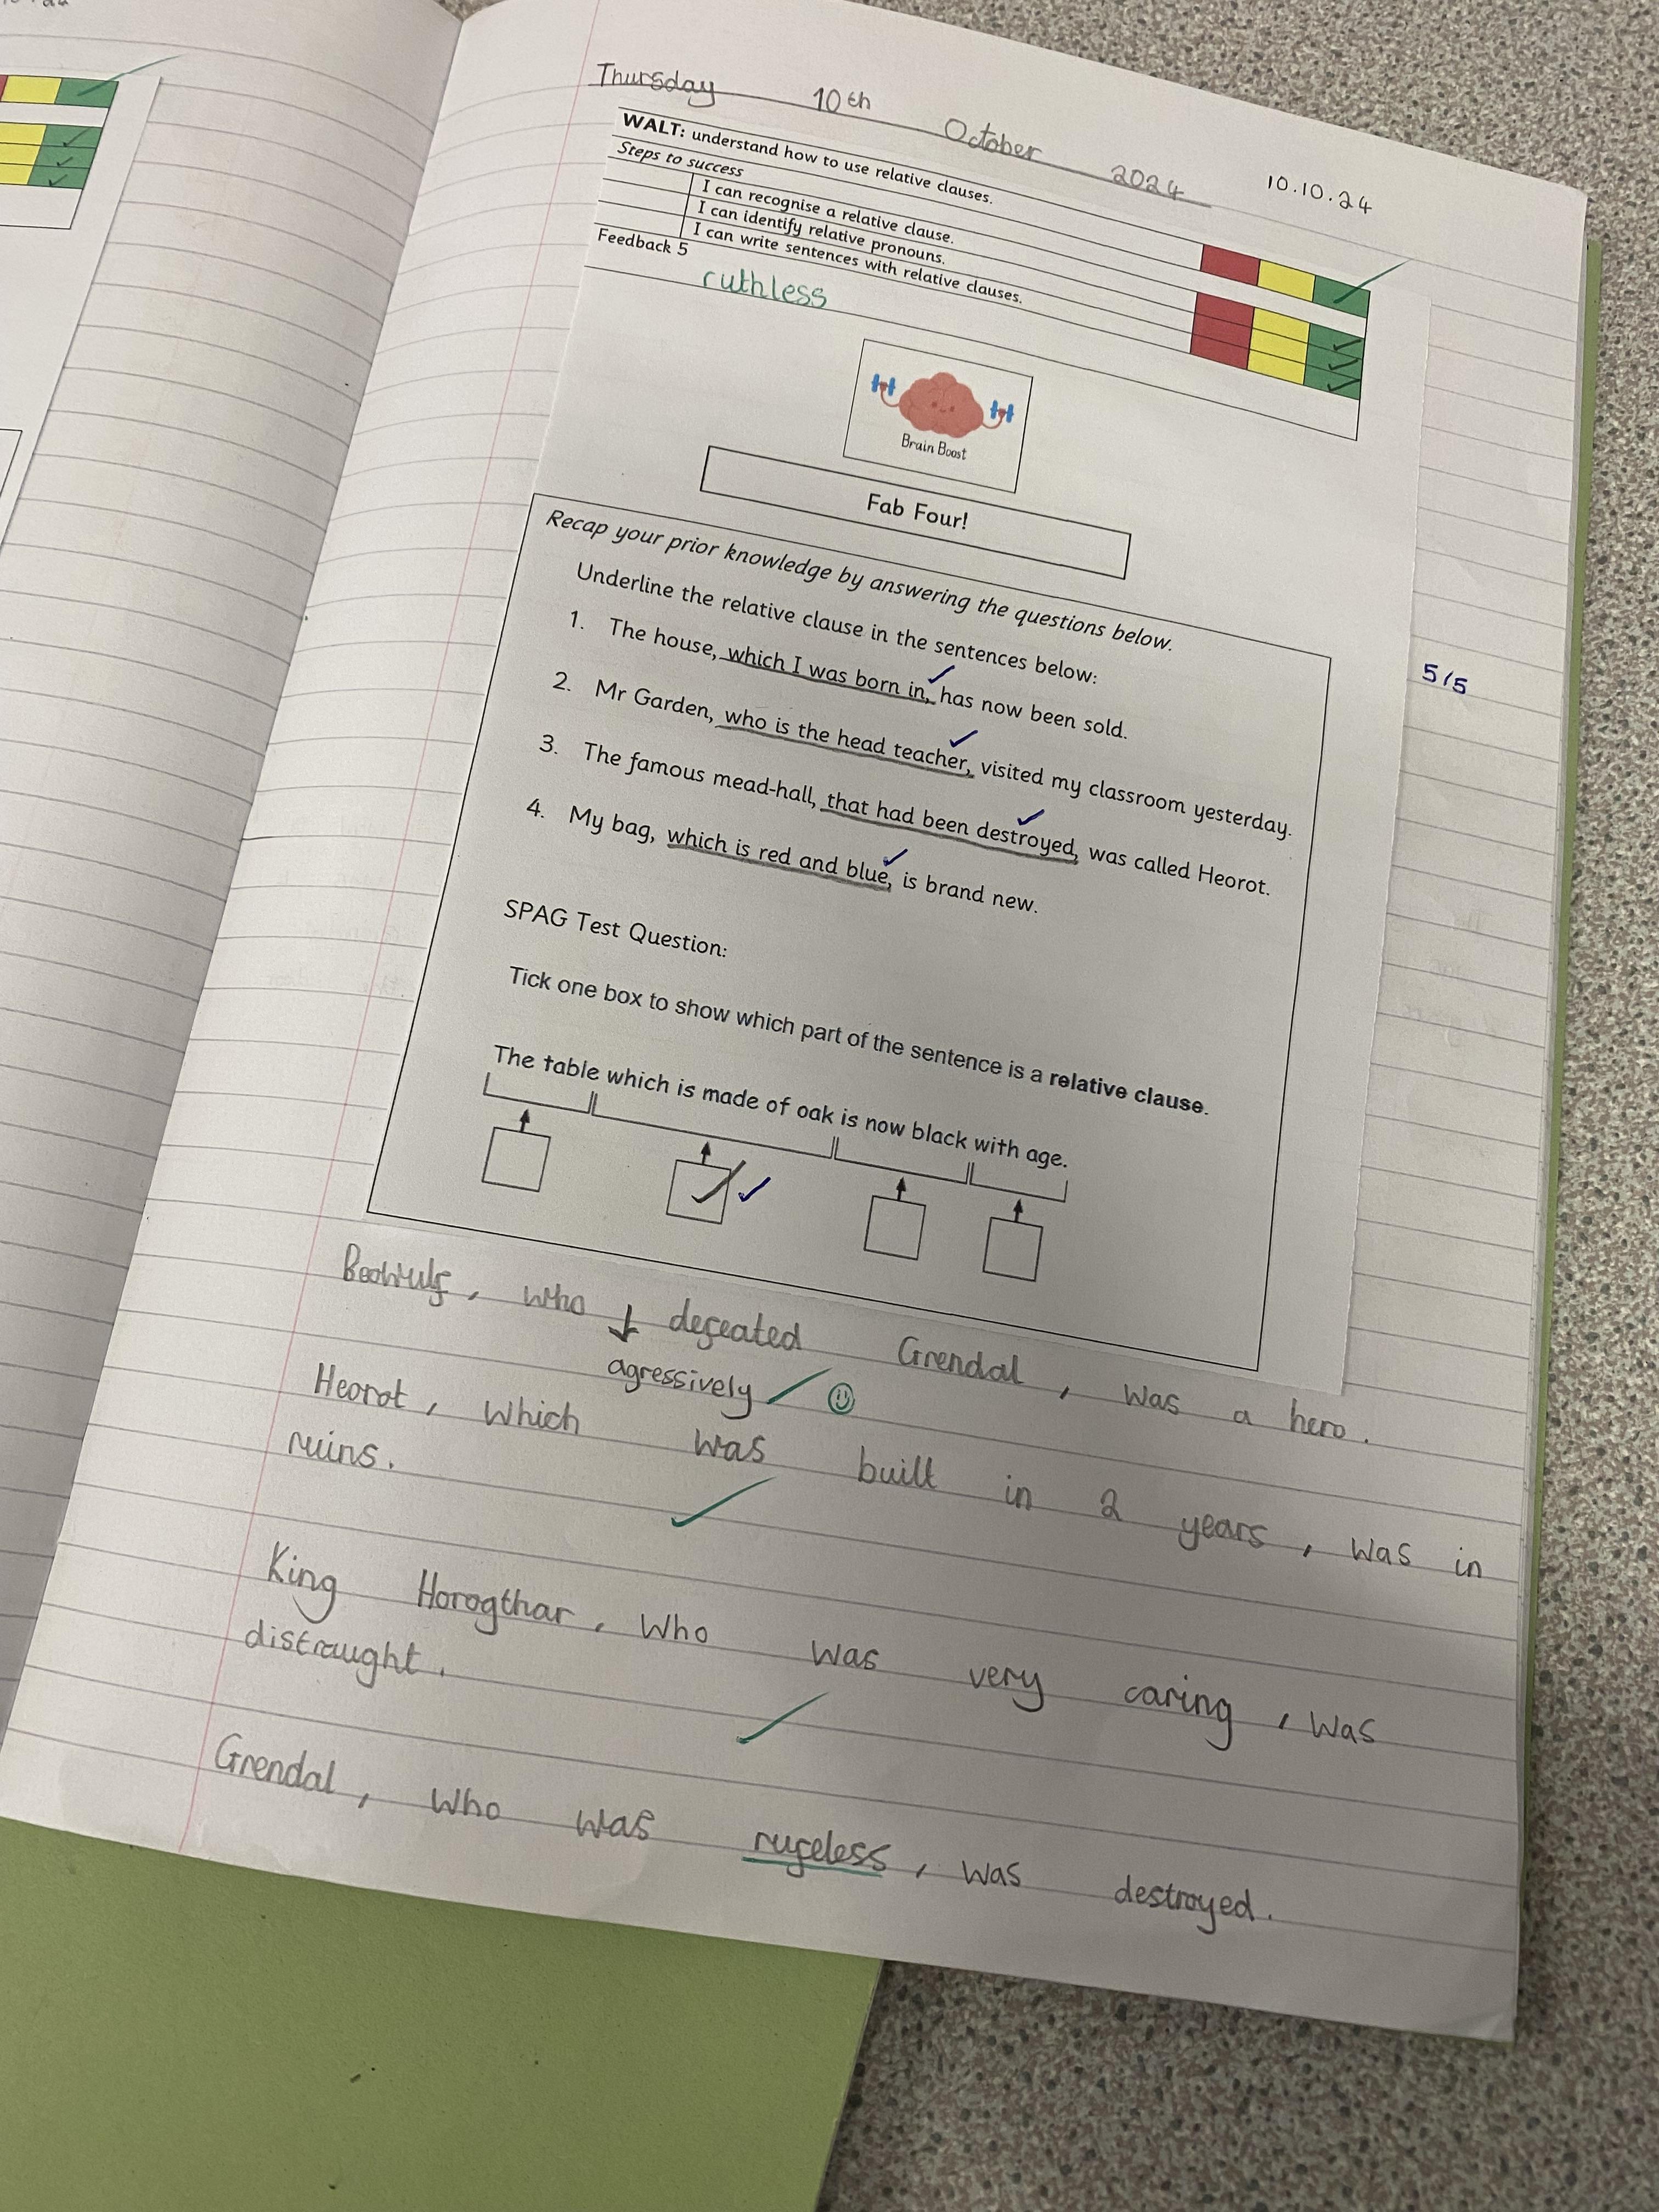 Thursday 10th October 2024 10.10.24
WALT: understand how to use relative clauses.
Steps to success
I can recognise a relative clause.
I can identify relative pronouns.
I can write sentences with relative clauses.
Feedback 5
ruthless
Brain Boost
Fab Four!
Recap your prior knowledge by answering the questions below.
Underline the relative clause in the sentences below:
1. The house, which I was born in, has now been sold.
2. Mr Garden, who is the head teacher, visited my classroom yesterday.
3. The famous mead-hall, that had been destroyed, was called Heorot.
4. My bag, which is red and blue, is brand new.
5/5
SPAG Test Question:
Tick one box to show which part of the sentence is a relative clause.
The table which is made of oak is now black with age.
Beowulf, who defeated Grendal, was a hero.
agressively
Heorot, which was built in 2 years, was in
ruins.
King Horogthar, who was very caring, was
distraught.
Grendal, who was rufeless, was destroyed.